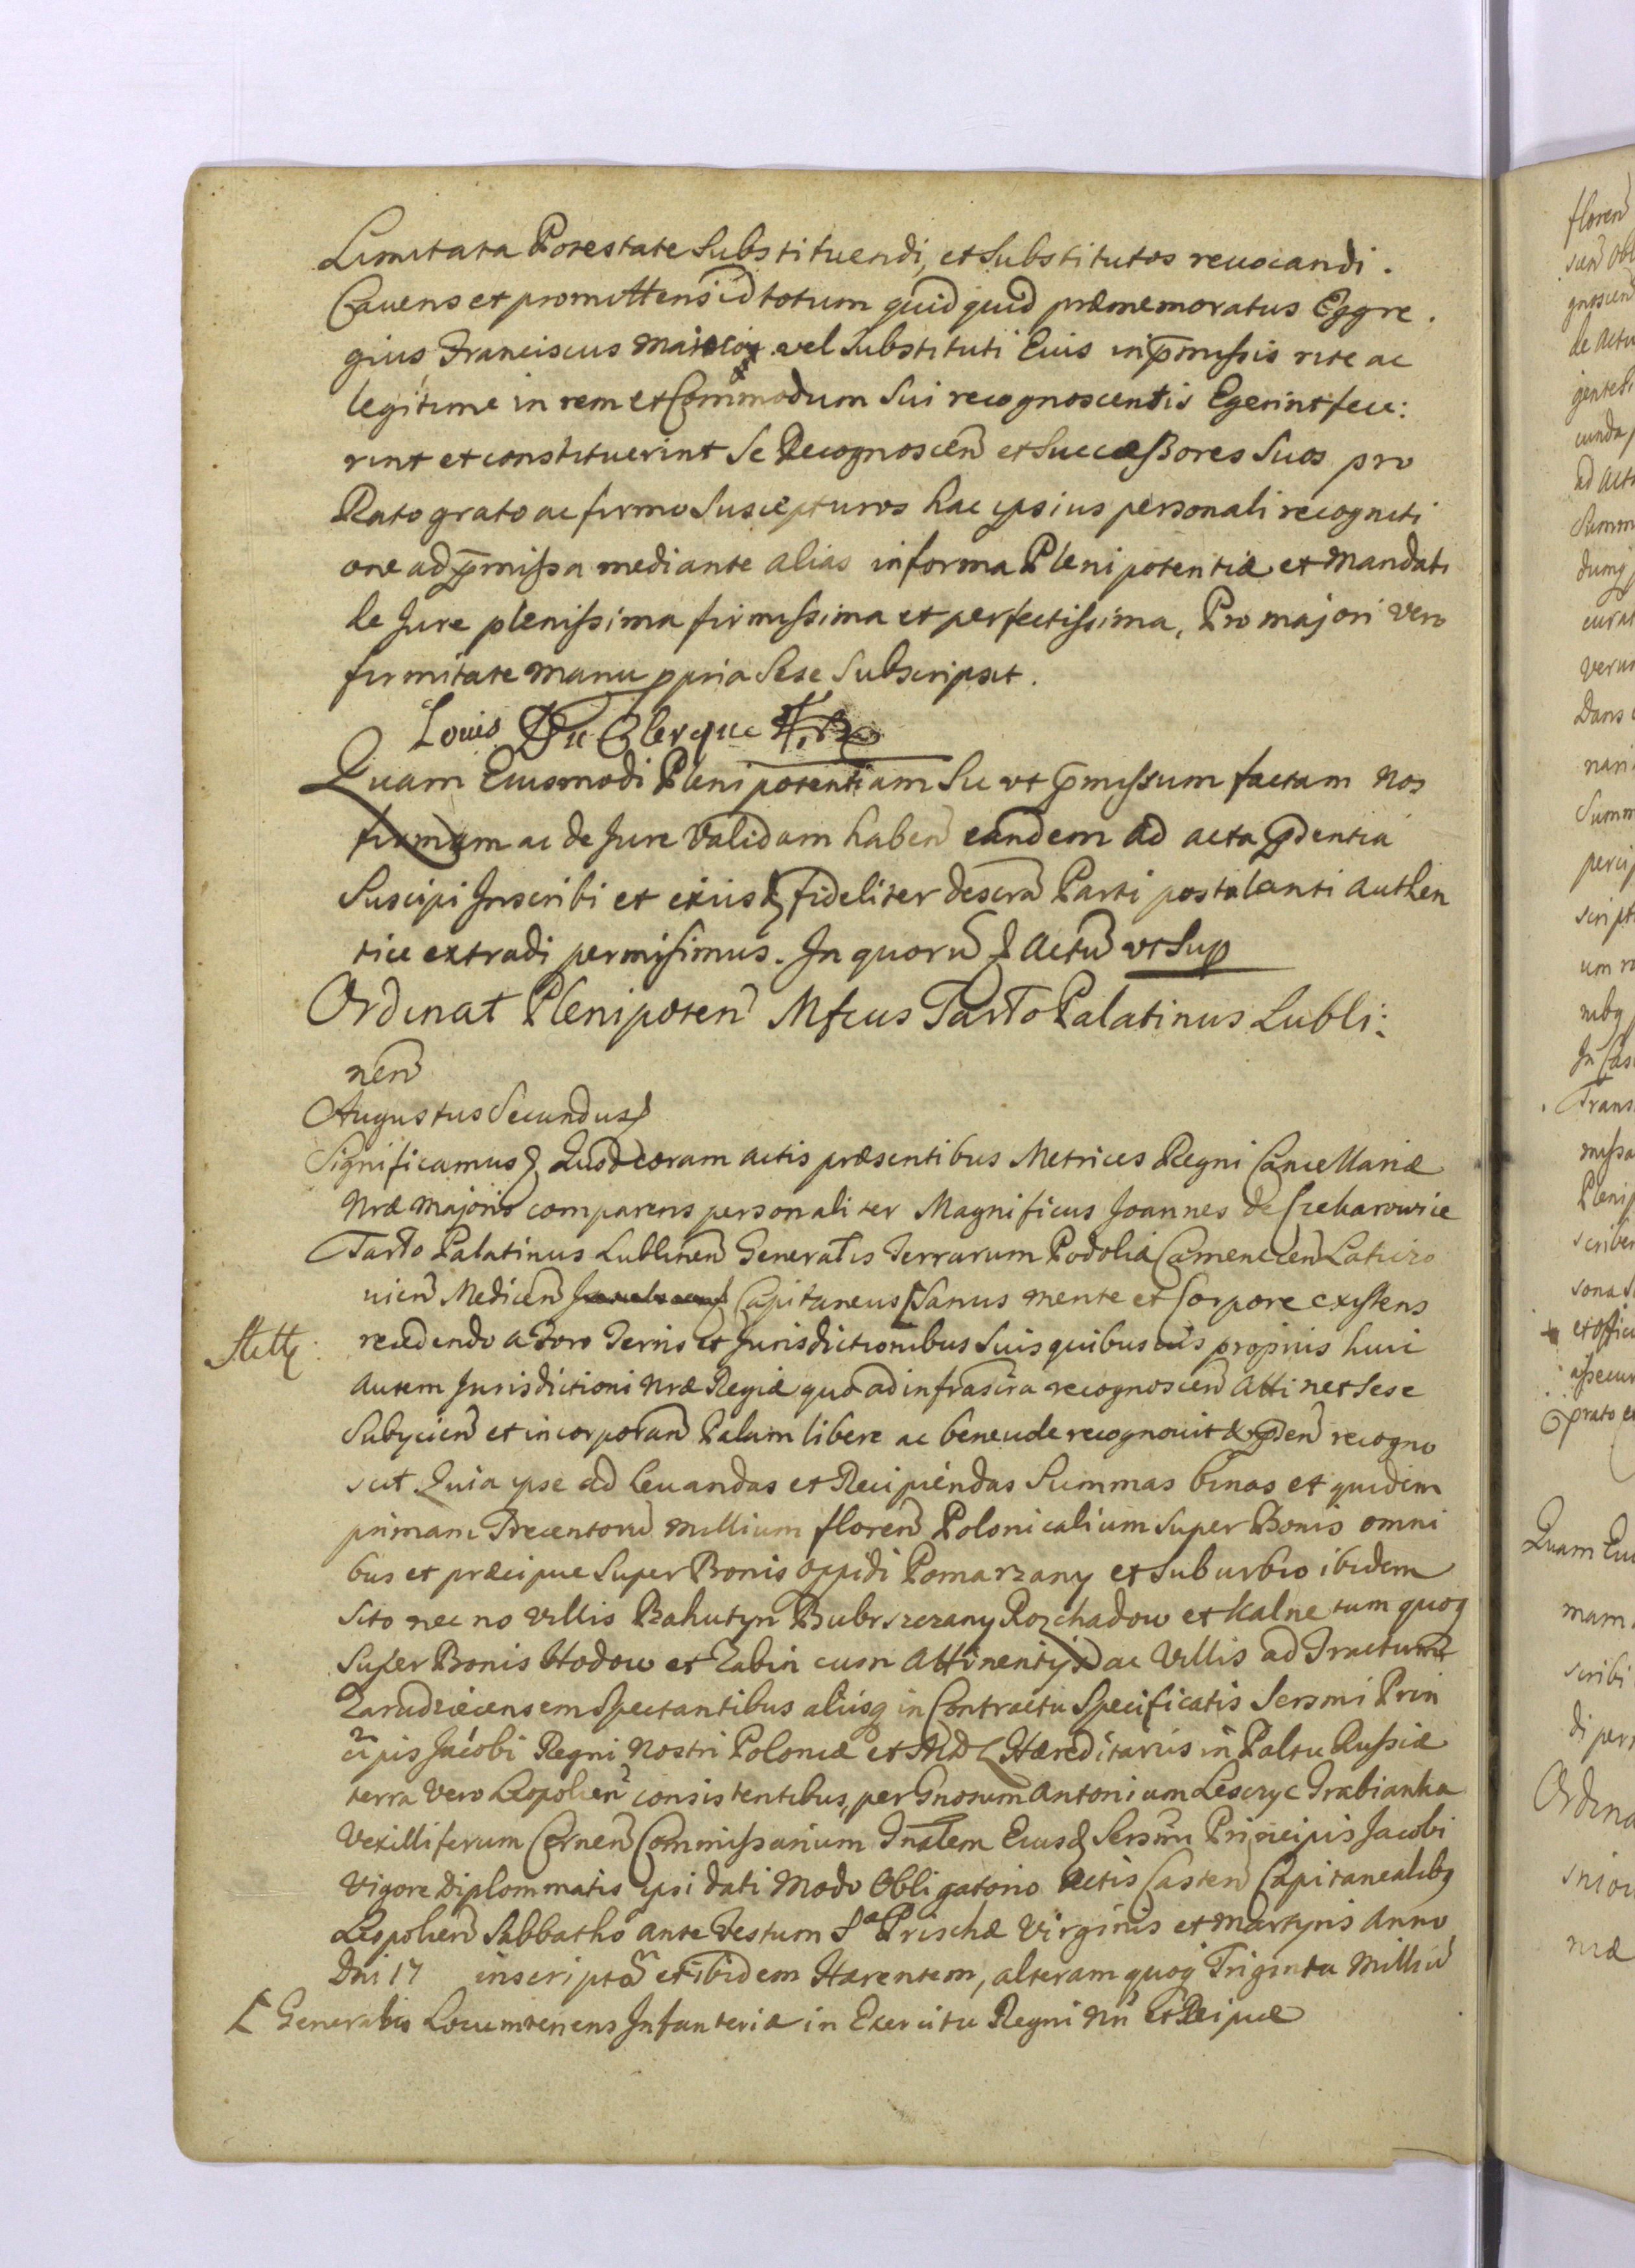 Limitata Potestate Substituendi, et Substitutos reuocandi.
Cauens et promittens id totum quidquid præmemoratus Eggre.
gius Franciscus vel Substituti Eius in p̄missis rite ac
legitime in rem et Commodum Sui recognoscentis Egerint fece:
rint et constituerint Se Recognoscen̄ et Successores Suos pro
Rato grato ac firmo Suscepturos hac ipsius personali recogniti
one ad p̄missa mediante alias in forma Plenipotentiæ et Mandati
de Jure plenissima firmissima et perfectissima, Pro majori vero
firmitate manu ppria Sese Subscripsit.
Louis Du Clerque
Quam Eiusmodi Plenipotentiam Sic vt p̄missum factam nos
firmam ac de Jure Validam haben̄ eandem ad acta p̄dentia
Suscipi Inscribi et eiusd fideliter descra Parti postulanti authen
tice extradi permisimus. In quorū Actū vt Sup
Ordinat Plenipoten̄ Mfcus Tarło Palatinus Lubli:
nen̄
Augustus Secundus
Significamus Quod coram actis præsentibus Metrices Regni Cancellariæ
Nræ majoris comparens personaliter Magnificus Joannes de Szekarowice
Tarło Palatinus Lublinen̄ Generalis Terrarum Podoliæ Camenecen̄ Laticzo
uien̄ Medicen̄ Capitaneus Sanus mente et Corpore existens
recedendo a Foro Terris et Jurisdictionibus Suis quibusuis propriis huic
autem Jurisdictioni Nræ Regiæ quo ad infrascra recognoscen̄ Attinet Sese
Subycien̄ et incorporan̄ Palam libere ac beneuole recognouit & p̄den̄ recogno
scit Quia ipse ad leuandas et Recipiendas Summas binas et quidem
primam Trecentorū millium floren̄ Polonicalium Super Bonis omni
bus et præcipue Super Bonis oppidi Pomarzany et Suburbio ibidem
Sito nec no Villis Bahutyn Bubrszczany Rozhadow et Kalne tum quoq
Super Bonis Hodow et Zabin cum Attinentijs ac Villis ad Tractum
Zarudziecensem Spectantibus alijsq in Contractu Specificatis Sersmi Prin
cipis Jacobi Regni Nostri Poloniæ et MDL Hæreditariis in Paltu Russiæ
terra vero Leopolien̄ consistentibus, per Gnosum Antonium Lesczyc Grabianka
Vexilliferum Commissarium Gnalem Eiusd Sersmi Principis Jacobi
Vigore Diplommatis ipsi dati Modo Obligatorio Actis Casten̄ Capitanealibq
Leopolien̄ Sabbatho ante Festum Sa Prischæ Virginis et Martyris Anno
Dni 17 inscriptā et ibidem Hærentem, alteram quoq Triginta Milliū
Generalis Locumtenens Infanteriæ in Exercitu Regni Nri et Reipuæ